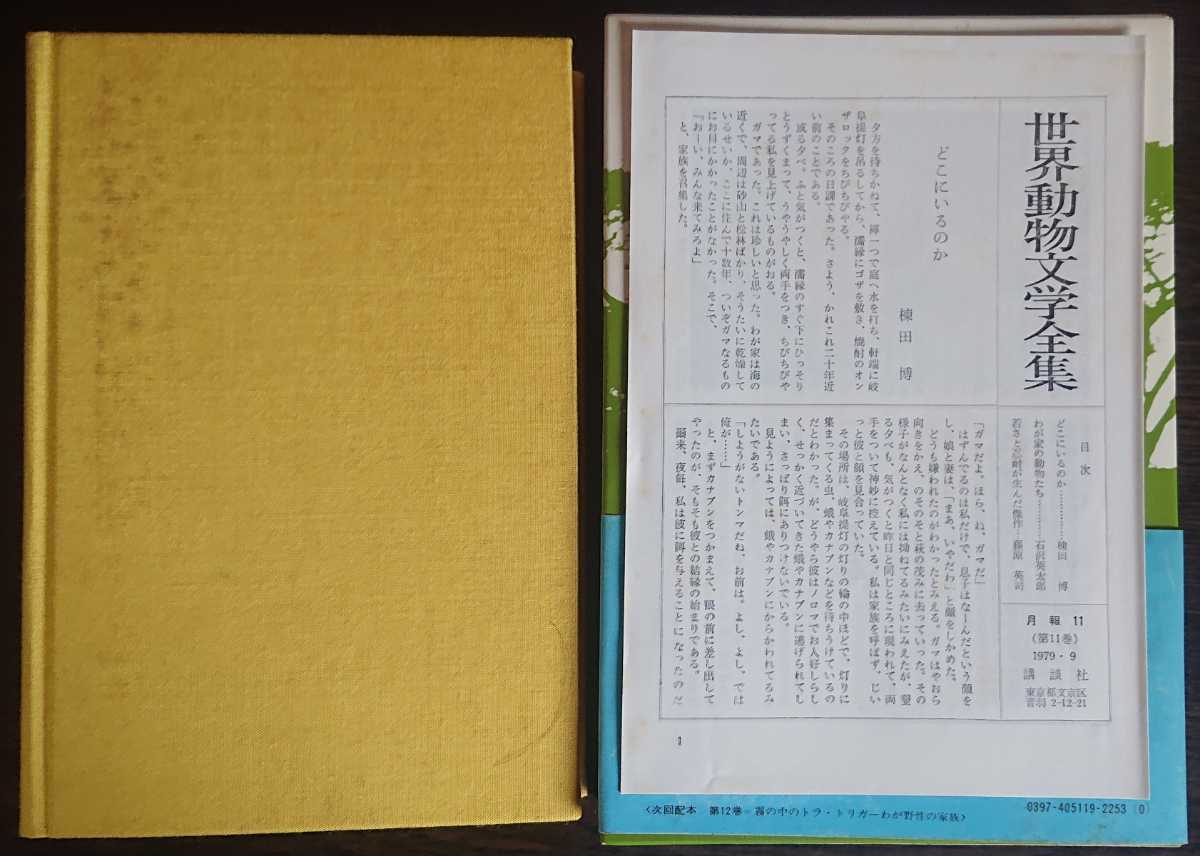 世界動物文学全集
目次
どこにいるのか…………棟田 博
わが家の動物たち………石沢英太郎
若さと忍耐が生んだ傑作…藤原 英司
月報 11
(第11巻)
1979・9
講談社
東京都文京区
音羽 2-12-21
どこにいるのか
棟田 博
夕方を待ちかねて、褌一つで庭へ水を打ち、軒端に岐
阜提灯を吊るしてから、濡縁にゴザを敷き、焼酎のオン
ザロックをちびちびやる。
そのころの日課であった。さよう、かれこれ二十年近
い前のことである。
或る夕べ。ふと気がつくと、濡縁のすぐ下にひっそり
とうずくまって、うやうやしく両手をつき、ちびちびや
ってる私を見上げているものがおる。
ガマであった。これは珍しいと思った。わが家は海の
近くで、周辺は砂山と松林ばかり、そうたいに乾燥して
いるせいか、ここに住んで十数年、ついぞガマなるもの
にお目にかかったことがなかった。そこで、
「おーい、みんな来てみろよ」
と、家族を召集した。
「ガマだよ。ほら、ね、ガマだ」
はずんでるのは私だけで、息子はなーんだという顔を
し、娘と妻は、「まあ、いやだわ」と顔をしかめた。
どうも嫌われたのがわかったとみえる。ガマはやおら
向きをかえ、のそのそと萩の茂みに去っていった。その
様子がなんとなく私には拗ねてるみたいにみえたが、翌
る夕べも、気がつくと昨日と同じところに現われて、両
手をついて神妙に控えている。私は家族を呼ばず、じい
っと彼と顔を見合っていた。
その場所は、岐阜提灯の灯りの輪の中ほどで、灯りに
集まってくる虫、蛾やカナブンなどを待ちうけているの
だとわかった。が、どうやら彼はノロマでお人好しらし
く、せっかく近づいてきた蛾やカナブンに逃げられてし
まい、さっぱり餌にありつけないでいる。
見ようによっては、蛾やカナブンにからかわれてるみ
たいである。
「しようがないトンマだね、お前は。よし、よし、では
俺が……」
と、まずカナブンをつかまえて、眼の前に差し出して
やったのが、そもそも彼との結縁の始まりである。
爾来、夜毎、私は彼に餌を与えることになったのだ
3
〈次回配本 第12巻=霧の中のトラ・トリガーわが野性の家族〉
0397-405119-2253 (0)